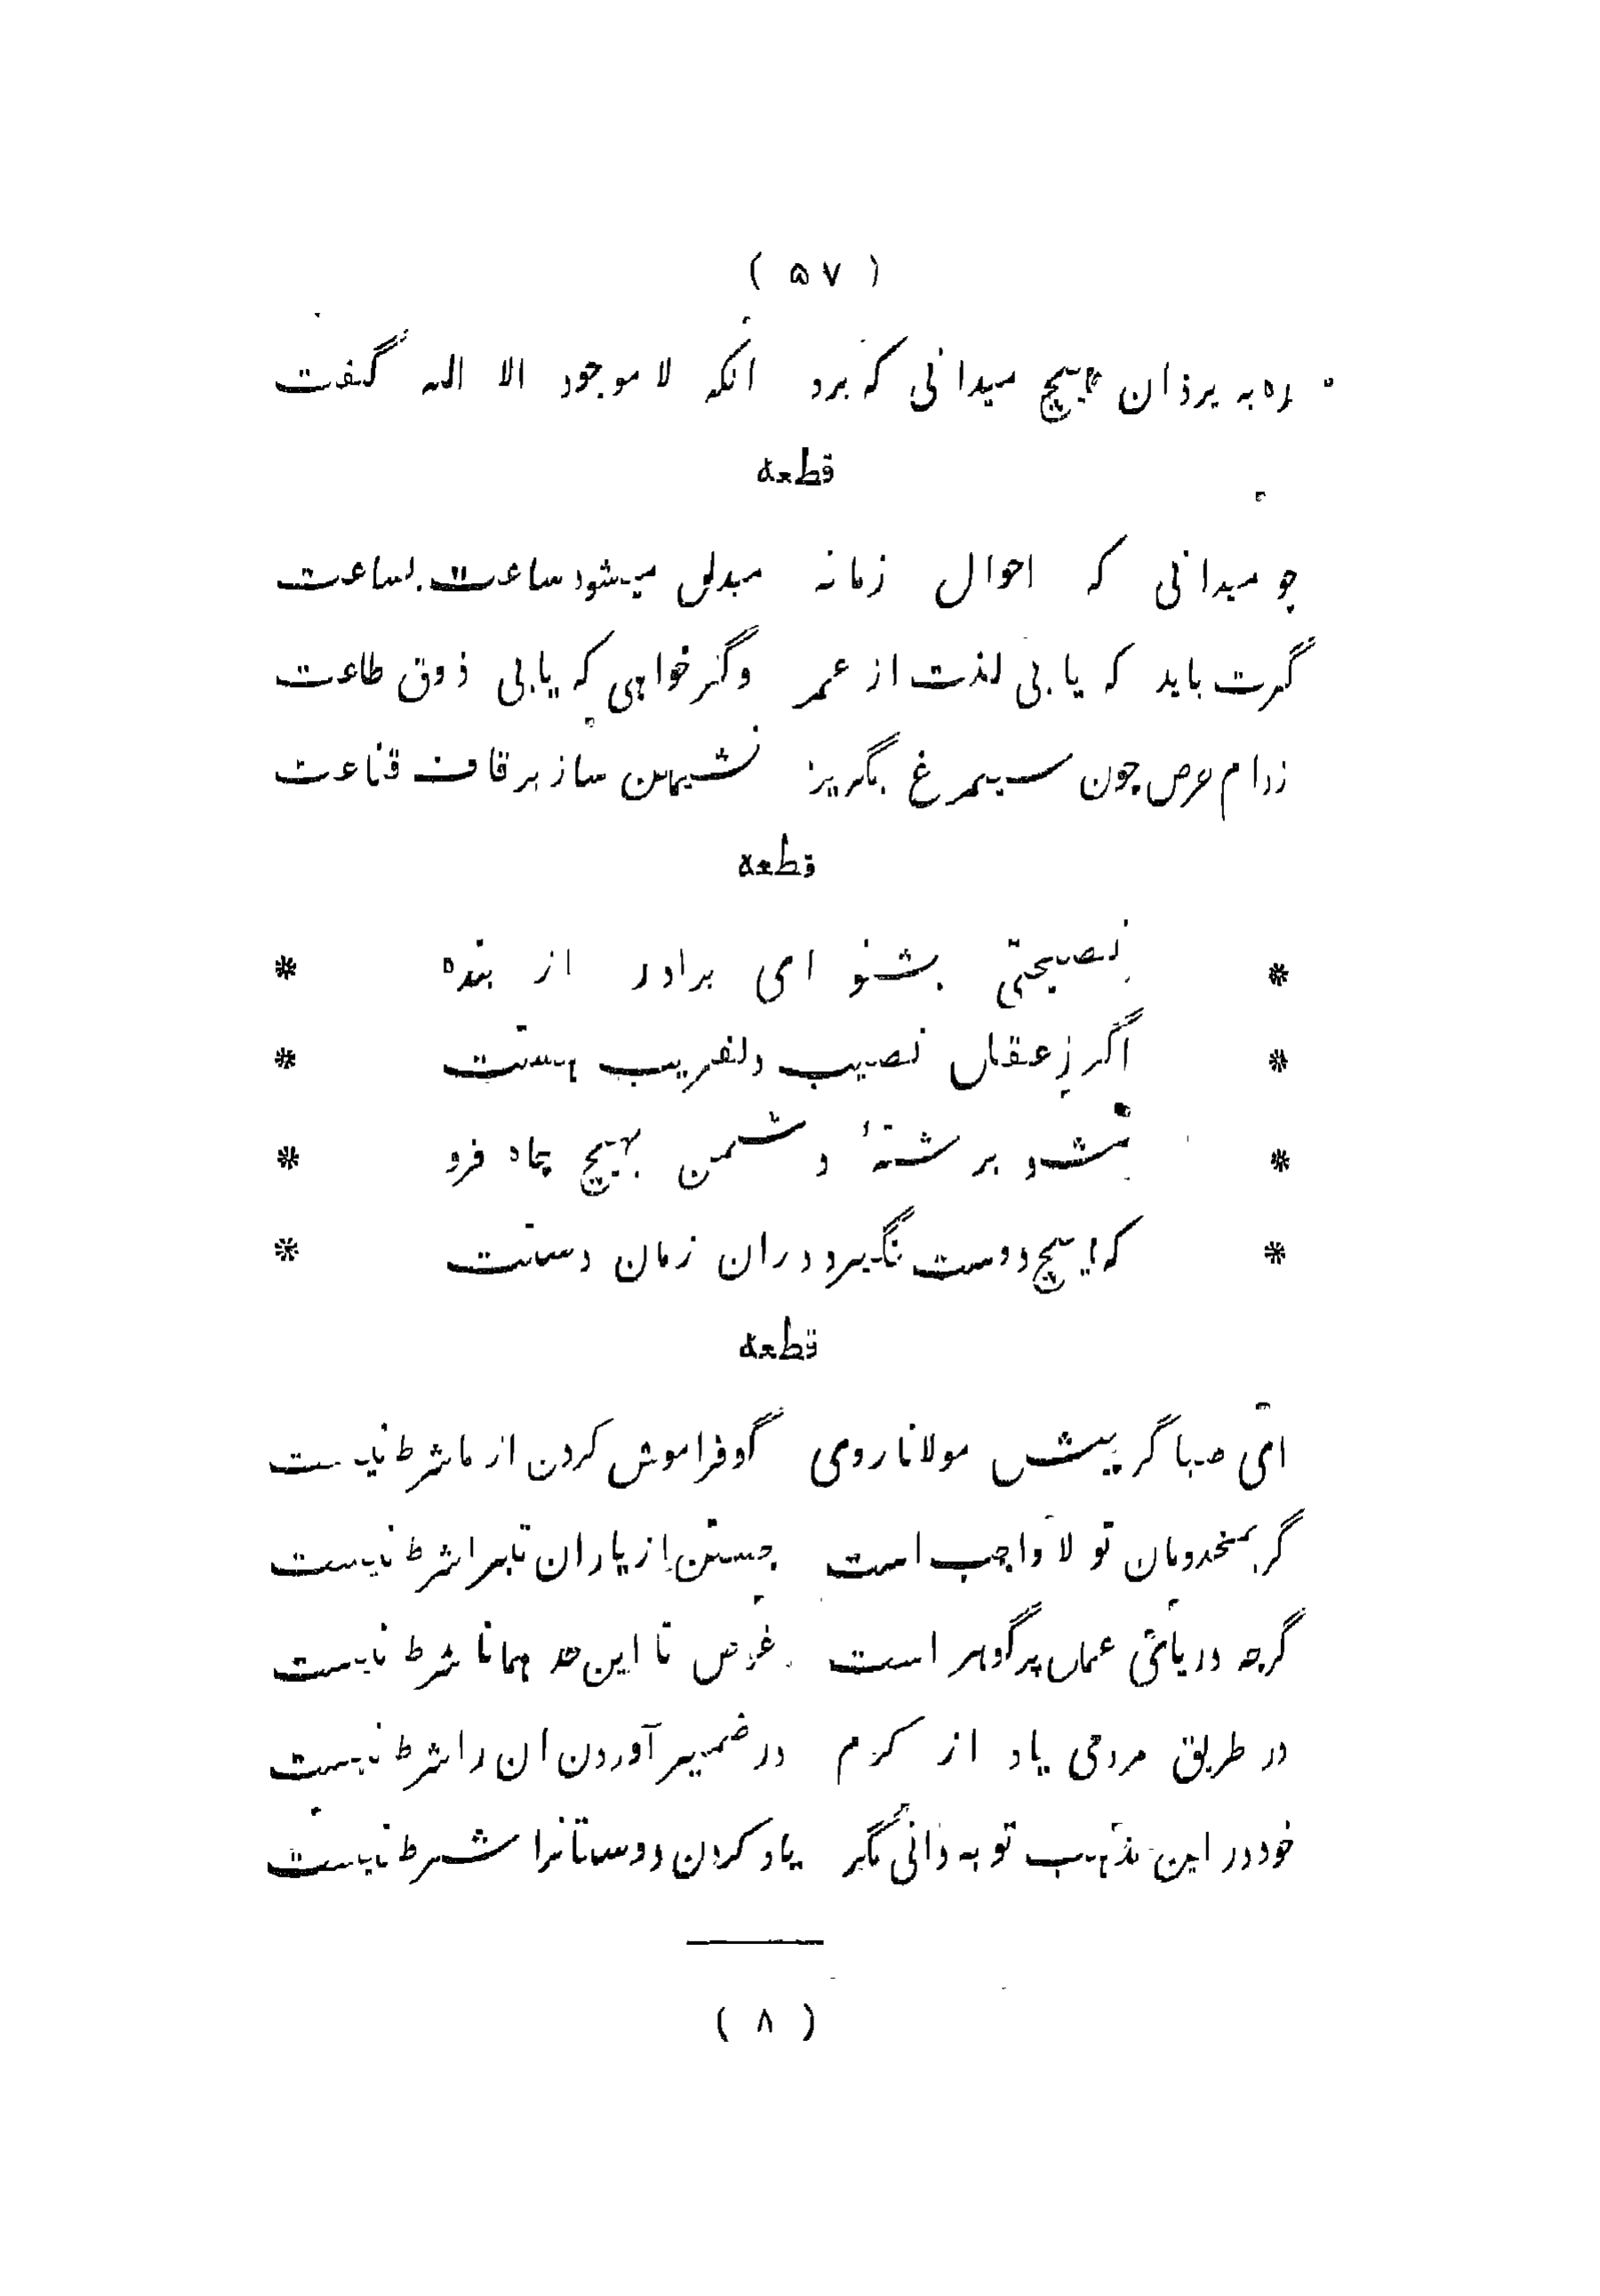 ( ۵۷ )
ره به یزدان هیچ میدانی که برد انکه لا موجود الا اله گفت
قطعه
چو میدانی که احوال زمانه مبدل میشود ساعت بساعت
گرت باید که یابی لذت از عمر وگر خواهی که یابی ذوق طاعت
زدام حرص چون سیمرغ بگریز نشیمن ساز بر قاف قناعت
قطعه
* نصیحتی بشنو ای برادر از بنده *
* اگر ز عقل نصیب دلفریب هست *
* مشو برشتهٔ دشمن بهیچ چاه فرو *
* که هیچ دوست نگیرد دران زمان دستت *
قطعه
ای صبا گر پیش مولانا روی گو فراموش کردن از ما شرط نیست
گر بمخدومان تولا واجب است جستن از یاران تبرا شرط نیست
گرچه دریائی عمان پر گوهر است غوص تا این حد همانا شرط نیست
در طریق مردمی یاد از کرم در ضمیر آوردن ان را شرط نیست
خود در این مذهب تو به دانی مگر یاد کردن دوستانرا شرط نیست
( ۸ )